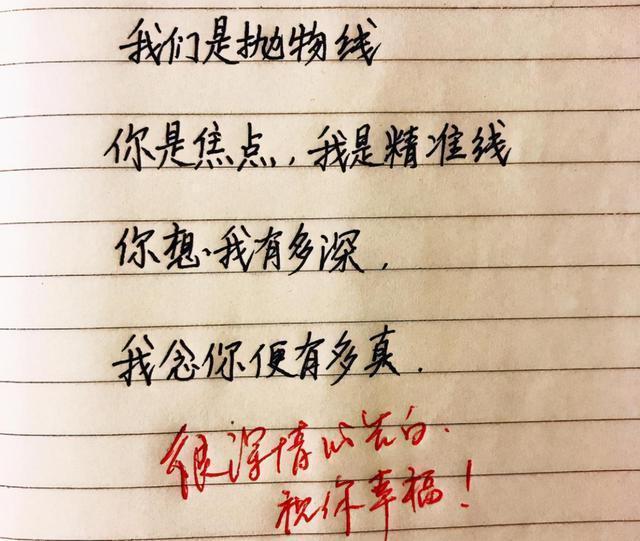 我们是抛物线
你是焦点，我是精准线
你想我有多深，
我念你便有多真.
很深情的告白.
祝你幸福！